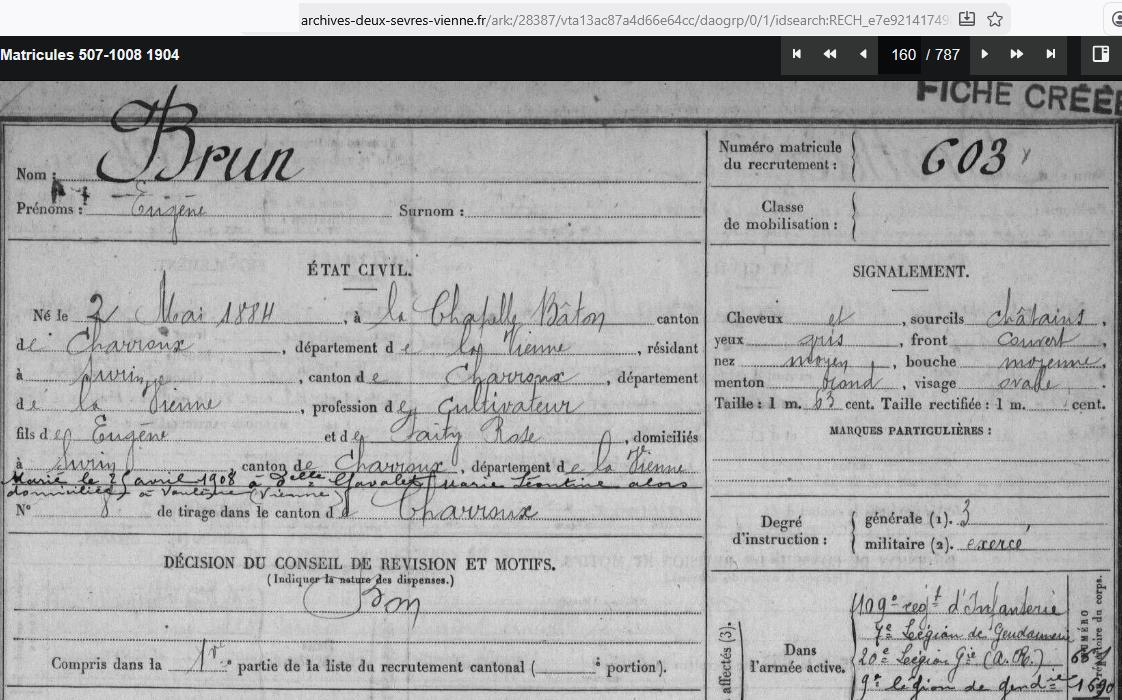 archives-deux-sevres-vienne.fr/ark:/28387/vta13ac87a4d66e64cc/daogrp/0/1/idsearch:RECH_e7e92141749
Matricules 507-1008 1904
160 / 787
FICHE CRÉÉE
Nom : Brun
Prénoms : Eugène Surnom :
Numéro matricule du recrutement : 603
Classe de mobilisation :
ÉTAT CIVIL.
Né le 2 Mai 1884, à la Chapelle Bâton canton
de Charroux, département de la Vienne, résidant
à Surin, canton de Charroux, département
de la Vienne, profession de Cultivateur
fils de Eugène et de Rose, domiciliés
à Surin, canton de Charroux, département de la Vienne
Marié le 25 avril 1908 à Delle Gavalet Marie Léontine alors
domiciliée à (Vienne)
N° 8 de tirage dans le canton de Charroux
SIGNALEMENT.
Cheveux et, sourcils châtains,
yeux gris, front couvert
nez moyen, bouche moyenne,
menton rond, visage ovale.
Taille : 1 m. 63 cent. Taille rectifiée : 1 m. cent.
MARQUES PARTICULIÈRES :
Degré d'instruction :
générale (1). 3
militaire (2). exercé
DÉCISION DU CONSEIL DE REVISION ET MOTIFS.
(Indiquer la nature des dispenses.)
Bon
Compris dans la 1re partie de la liste du recrutement cantonal ( portion).
affectés (3).
Dans l'armée active.
109e regt d'Infanterie
7e Légion de Gendarmerie
20e Légion Gie (A.R.)
9e légion de gendie 1690
NUMÉRO
répertoire du corps.